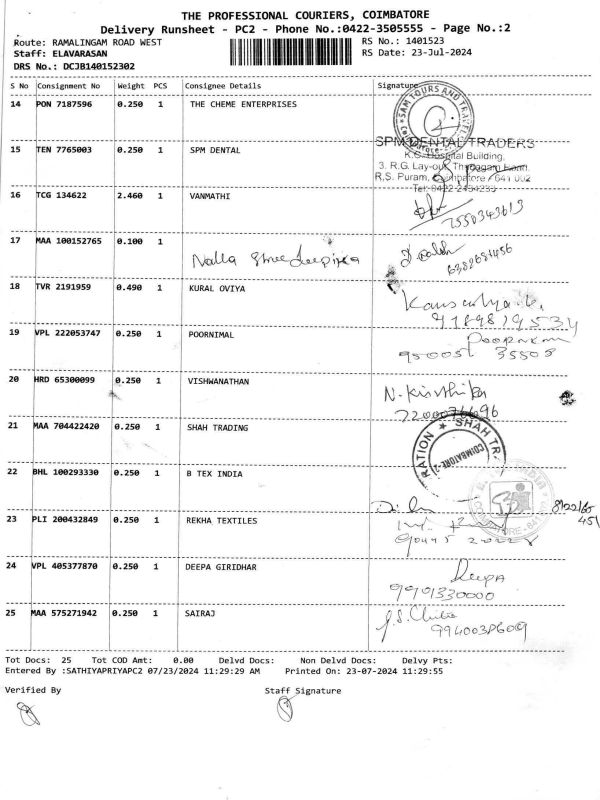 THE PROFESSIONAL COURIERS, COIMBATORE
Delivery Runsheet - PC2 - Phone No.:0422-3505555 - Page No.:2
Route: RAMALINGAM ROAD WEST RS No.: 1401523
Staff: ELAVARASAN RS Date: 23-Jul-2024
DRS No.: DCJB140152302
S No Consignment No Weight PCS Consignee Details Signature
14 PON 7187596 0.250 1 THE CHEME ENTERPRISES
SAM TOURS AND TRAVEL
15 TEN 7765003 0.250 1 SPM DENTAL
SPM DENTAL TRADERS
K.G. Hospital Building,
3. R.G. Lay-out, Thyagaraj Road,
R.S. Puram, Coimbatore - 641 002
Tel: 0422 2434233
16 TCG 134622 2.460 1 VANMATHI
7550343613
17 MAA 100152765 0.100 1 Nalla Shree deepika
18 TVR 2191959 0.490 1 KURAL OVIYA
19 VPL 222053747 0.250 1 POORNIMAL
950051 35505
20 HRD 65300099 0.250 1 VISHWANATHAN
N. Kirthika
21 MAA 704422420 0.250 1 SHAH TRADING
SHAH TR
COIMBATORE-2
22 BHL 100293330 0.250 1 B TEX INDIA
23 PLI 200432849 0.250 1 REKHA TEXTILES
24 VPL 405377870 0.250 1 DEEPA GIRIDHAR
Deepa
9901330000
25 MAA 575271942 0.250 1 SAIRAJ
9940038609
Tot Docs: 25 Tot COD Amt: 0.00 Delvd Docs: Non Delvd Docs: Delvy Pts:
Entered By :SATHIYAPRIYAPC2 07/23/2024 11:29:29 AM Printed On: 23-07-2024 11:29:55
Verified By Staff Signature